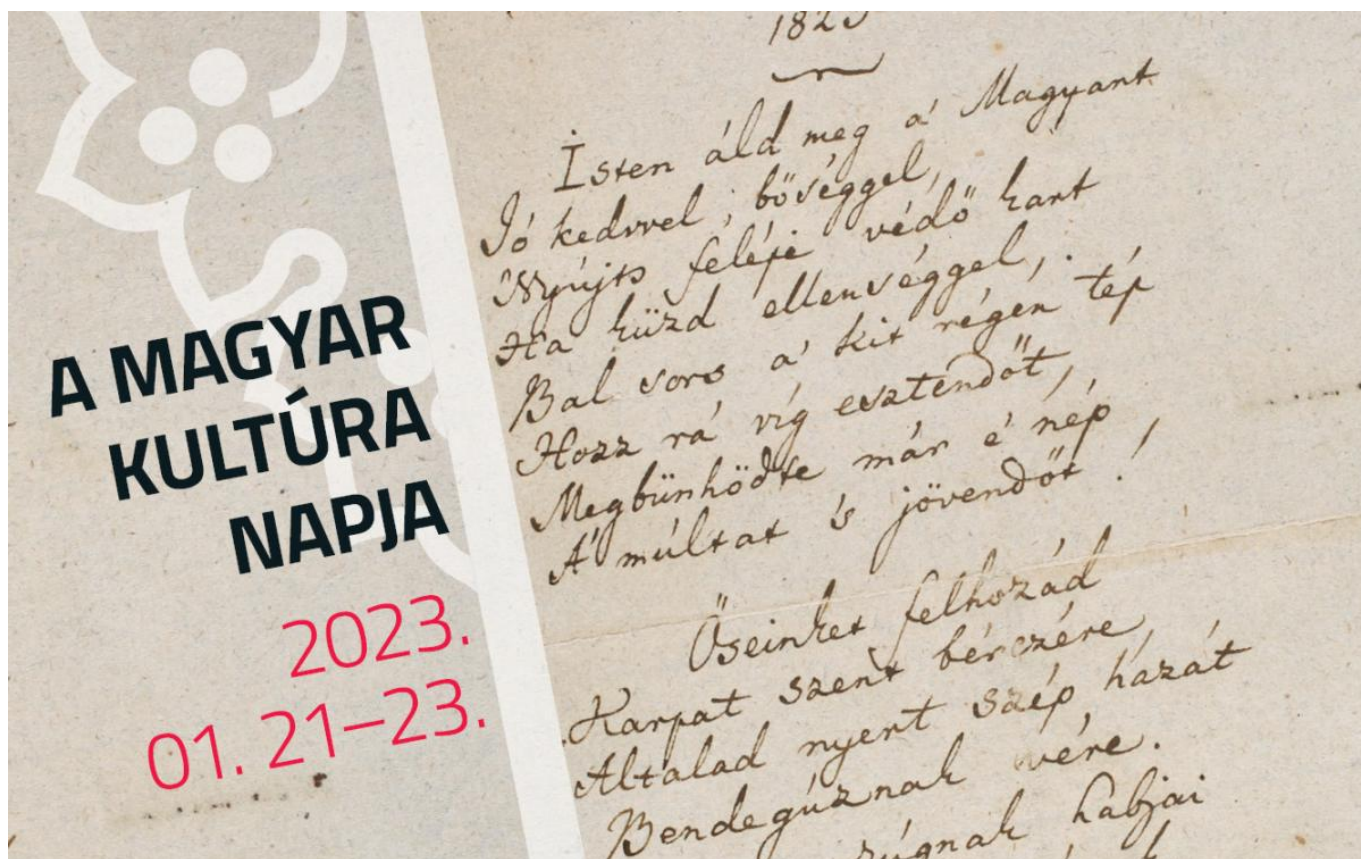 A MAGYAR
KULTÚRA
NAPJA
2023.
01. 21–23.
1823
Isten áld meg a' Magyart
Jó kedvvel, bőséggel,
Nyújts feléje védő kart
Ha küzd ellenséggel,
Bal sors a' kit régen tép
Hozz rá víg esztendőt,
Megbűnhődte már é nép
A' múltat 's jövendőt!
Őseinket felhozád
Kárpat szent bérczére,
Általad nyert szép hazát
Bendegúznak vére.
zúgnak habjai